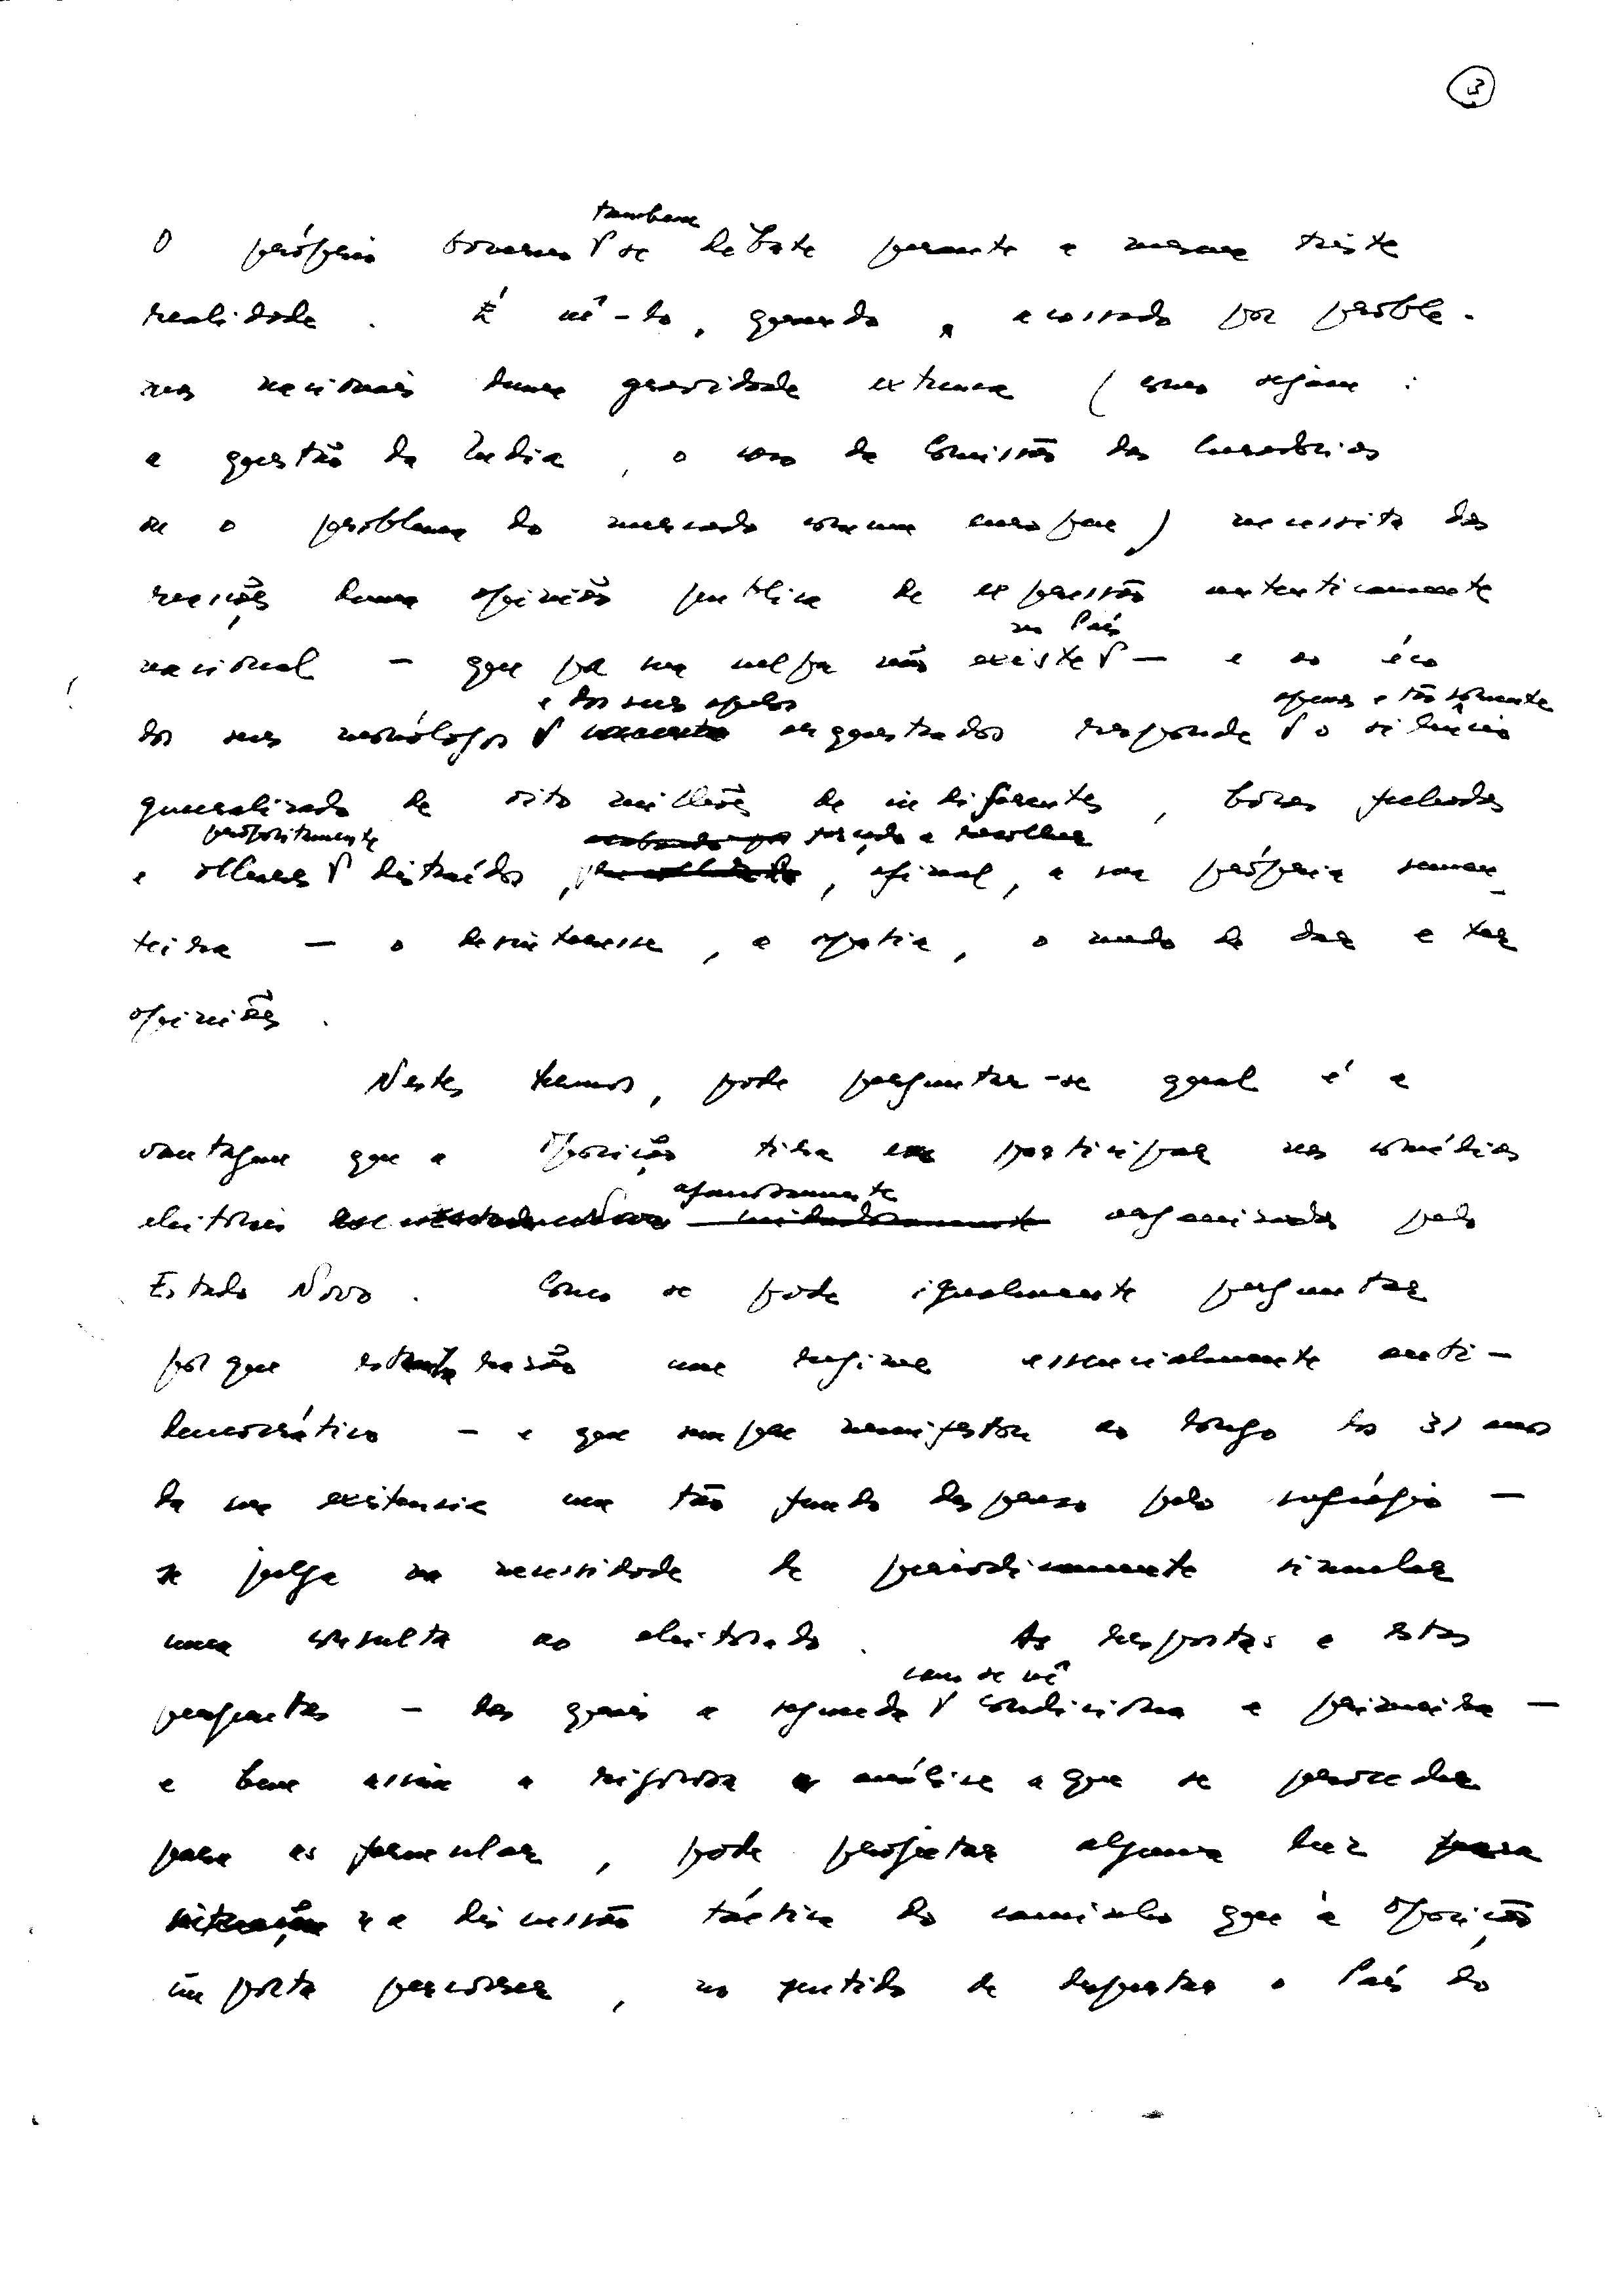 3
também
O próprio Governo se debate perante a mesma triste
realidade. É vê-lo, quando, acossado por proble-
mas nacionais duma gravidade extrema (como sejam:
a questão da India, o caso da Comissão das Curadorias
ou o problema do mercado comum europeu) necessita das
reacções duma opinião publica de expressão autenticamente
no País
nacional — que por sua culpa não existe — e ao éco
e dos seus apelos apenas e tão sòmente
dos seus monólogos orquestrados responde o silêncio
generalizado de oito milhões de indiferentes, bocas fechadas
propositamente forçado a recolher
e olhares distraídos, , afinal, a sua própria semen-
teira — o desinteresse, a apatia, o medo de dar e ter
opiniões.
Nestes termos, pode perguntar-se qual é a
vantagem que a Oposição tira em participar nas comédias
afanosamente
eleitorais organizadas pelo
Estado Novo. Como se pode igualmente perguntar
por que razão um regime essencialmente anti-
democrático — e que sempre manifestou ao longo dos 31 anos
da sua existencia um tão fundo desprezo pelo sufrágio —
se julga na necessidade de periodicamente simular
uma consulta ao eleitorado. As respostas a estas
como se vê
perguntas — das quais a segunda condiciona a primeira —
e bem assim a rigorosa análise a que se proceder
para as formular, pode projetar alguma luz para
na discussão táctica do caminho que à Oposição
importa percorrer, no sentido de despertar o País do